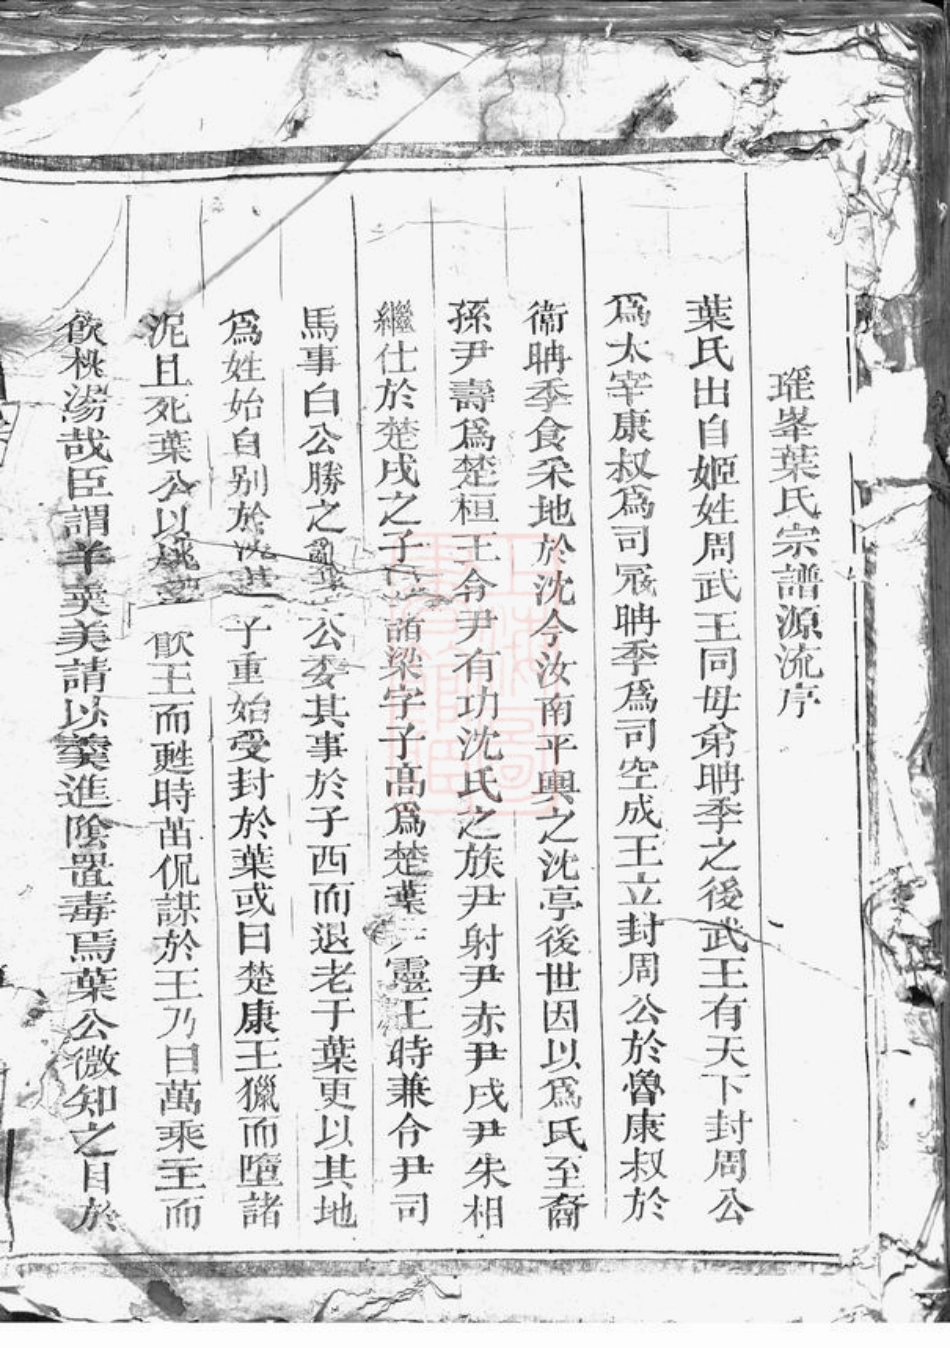 瑤峯葉氏宗譜源流序
葉氏出自姬姓周武王同母弟聃季之後武王有天下封周公
爲太宰康叔爲司冦聃季爲司空成王立封周公於魯康叔於
衞聃季食采地於沈今汝南平輿之沈亭後世因以爲氏至裔
孫尹壽爲楚桓王令尹有功沈氏之族尹射尹赤尹戌尹朱相
繼仕於楚戌之子諸梁字子高爲楚葉靈王時兼令尹司
馬事白公勝之公委其事於子西而退老于葉更以其地
爲姓始自别於子重始受封於葉或曰楚康王獵而墮諸
泥且死葉公以飮王而甦時苗侃謀於王乃曰萬乘王而
飲桃湯哉臣謂羊羙美請以羹進陰置毒焉葉公微知之目於